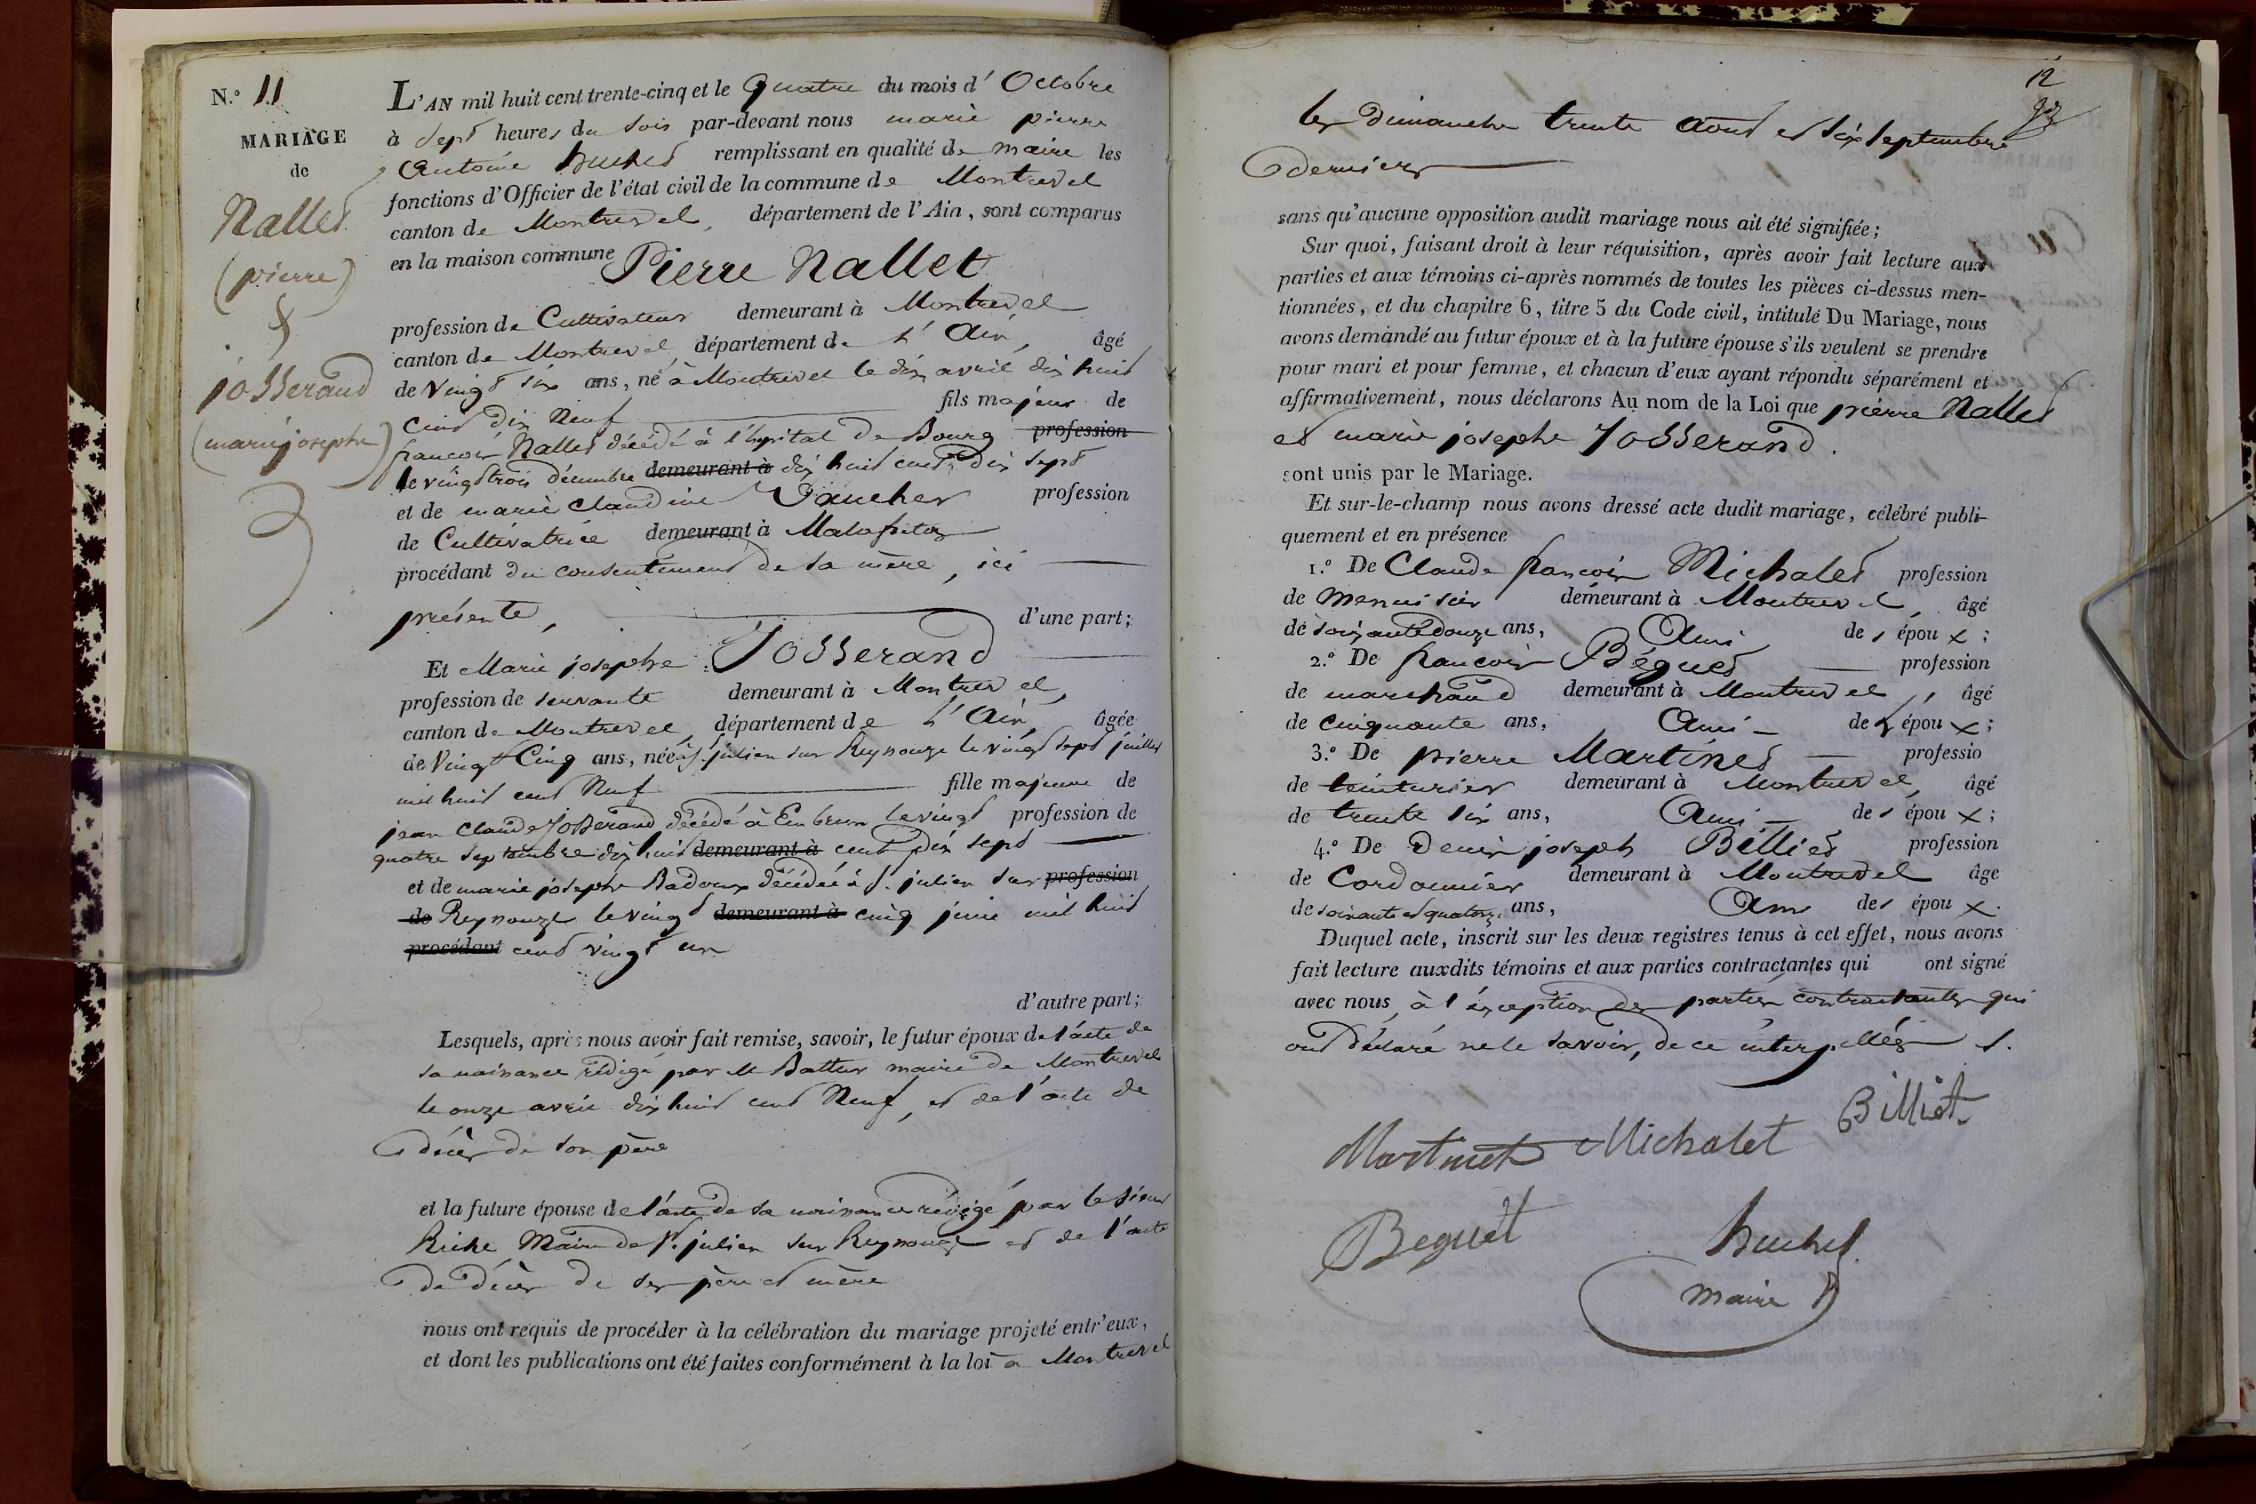 N.º 11
MARIAGE
de
Nallet
(pierre)
&
josserand
(marie josephe)
L'AN mil huit cent trente-cinq et le quatre du mois d'Octobre
à sept heures du soir par-devant nous marie pierre
Antoine huchet remplissant en qualité de maire les
fonctions d'Officier de l'état civil de la commune de Montrevel
canton de Montrevel, département de l'Ain, sont comparus
en la maison commune Pierre Nallet
profession de Cultivateur demeurant à Montrevel
canton de Montrevel, département de L'Ain, âgé
de vingt six ans, né à Montrevel le dix avril dix huit
cent dix Neuf fils majeur de
francois Nallet décédé à l'hopital de Bourg profession
le vingt trois décembre demeurant à dix huit cent dix sept
et de marie claudine Vaucher profession
de Cultivatrice demeurant à
procédant du consentement de sa mère, ici
présente, d'une part;
Et Marie josephe Josserand
profession de servante demeurant à Montrevel,
canton de Montrevel, département de L'Ain, âgée
de vingt Cinq ans, née à St. julien sur Reyssouze le vingt sept juillet
mil huit cent Neuf fille majeure de
jean claude Josserand décédé à Embrun le vingt profession de
quatre septembre dix huit demeurant à cent dix sept
et de marie josephe Badoux décédée à St. julien sur profession
de Reyssouze le vingt demeurant à cinq juin mil huit
procédant cent vingt un
d'autre part;
Lesquels, après nous avoir fait remise, savoir, le futur époux de l'acte de
sa naissance rédigé par M Battur maire de Montrevel
le onze avril dix huit cent Neuf, et de l'acte de
décès de son père
et la future épouse de l'acte de sa naissance rédigé par le sieur
Riche Maire de St. julien sur Reyssouze et de l'acte
de décès de ses père et mère
nous ont requis de procéder à la célébration du mariage projeté entr'eux,
et dont les publications ont été faites conformément à la loi à Montrevel
12
les dimanches trente août et six septembre
derniers
sans qu'aucune opposition audit mariage nous ait été signifiée;
Sur quoi, faisant droit à leur réquisition, après avoir fait lecture aux
parties et aux témoins ci-après nommés de toutes les pièces ci-dessus men-
tionnées, et du chapitre 6, titre 5 du Code civil, intitulé Du Mariage, nous
avons demandé au futur époux et à la future épouse s'ils veulent se prendre
pour mari et pour femme, et chacun d'eux ayant répondu séparément et
affirmativement, nous déclarons Au nom de la Loi que pierre Nallet
et marie josephe Josserand.
sont unis par le Mariage.
Et sur-le-champ nous avons dressé acte dudit mariage, célébré publi-
quement et en présence
1.º De Claude francois Michalet profession
de Menuisier demeurant à Montrevel, âgé
de soixante douze ans, Ami des époux;
2.º De francois Béguet profession
de marchand demeurant à Montrevel, âgé
de cinquante ans, Ami des époux;
3.º De pierre Martinet professio
de teinturier demeurant à Montrevel, âgé
de trente six ans, Ami des époux;
4.º De Denis joseph Billiet profession
de Cordonnier demeurant à Montrevel âge
de soixante et quatorze ans, Ami des époux.
Duquel acte, inscrit sur les deux registres tenus à cet effet, nous avons
fait lecture auxdits témoins et aux parties contractantes qui ont signé
avec nous, à l'exception des parties contractantes qui
ont déclaré ne le savoir, de ce interpellés.
Martinet Michalet Billiet
Beguet huchet
maire